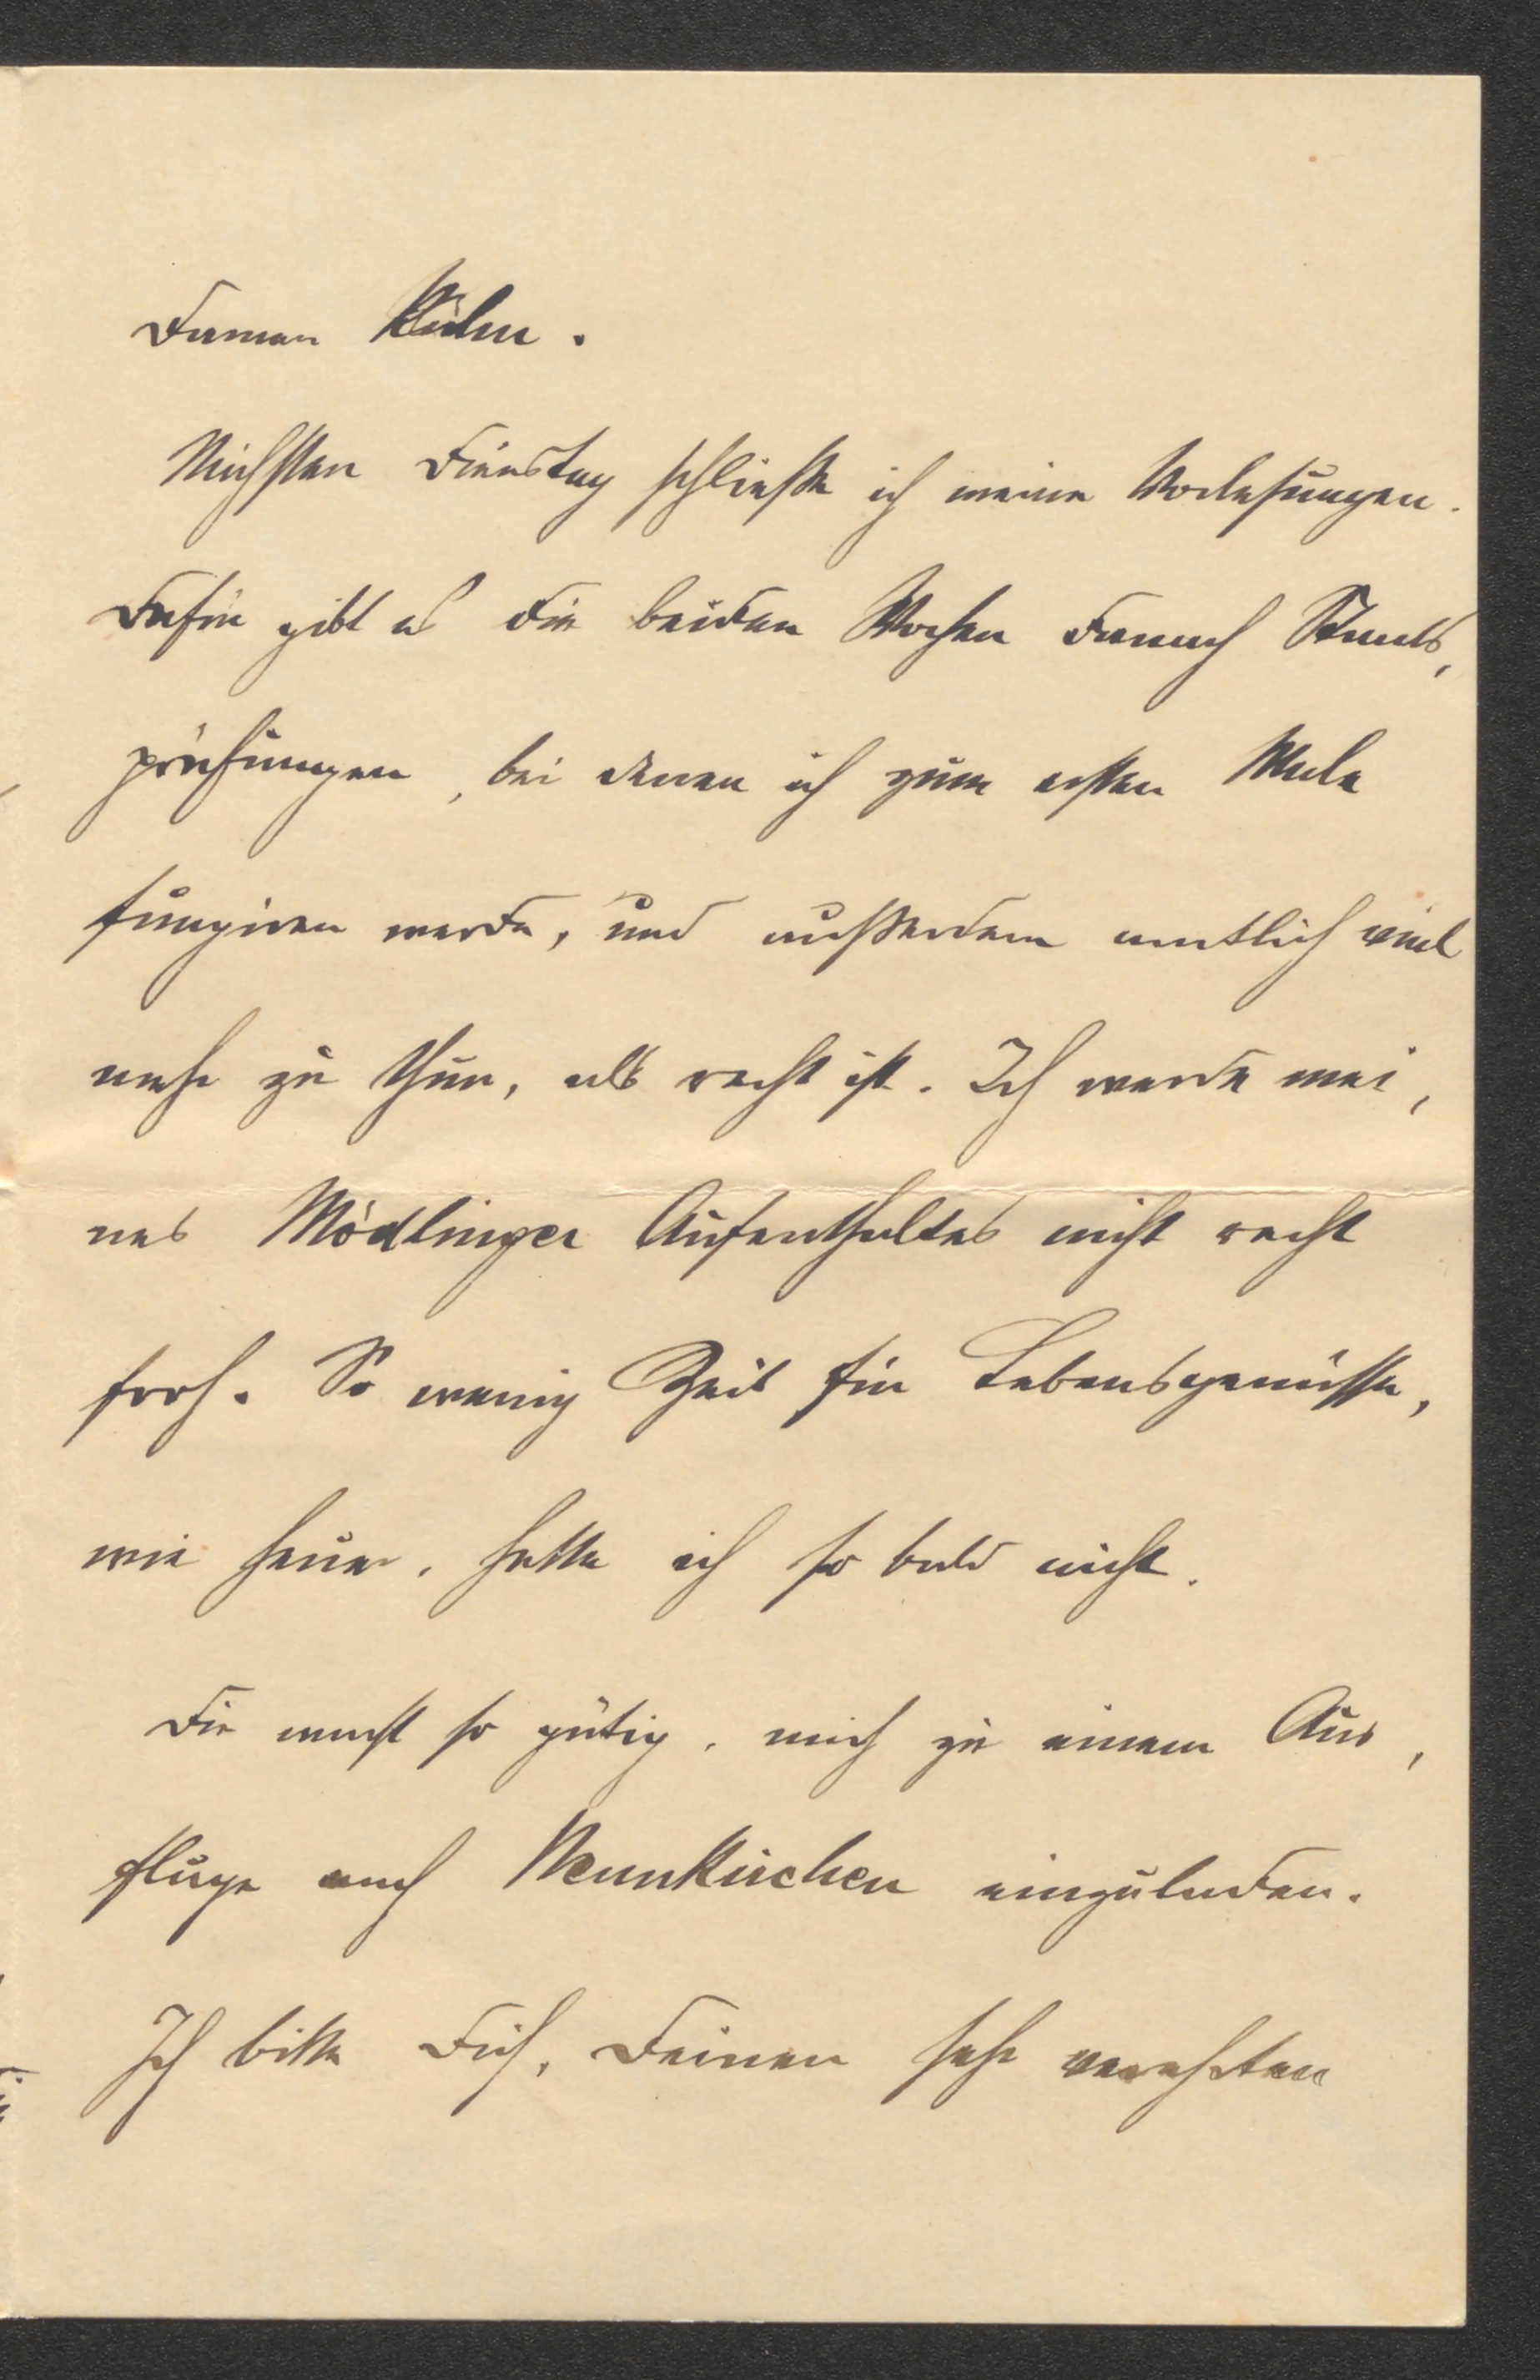 Damen Kühn.
Nächsten Dienstag schließe ich meine Vorlesungen.
Dafür gibt es die beiden Wochen danach Staats,
prüfungen, bei denen ich zum ersten Male
fungiren werde, und außerdem amtlich viel
mehr zu thun, als recht ist. Ich werde mei,
nes Mödlinger Aufenthaltes nicht recht
froh. So wenig Zeit für Lebensgenüsse,
wie heuer, hatte ich so bald nicht.
Du warst so gütig, mich zu einem Aus,
fluge nach Neunkirchen einzuladen.
Ich bitte Dich, Deinen sehr verehrten